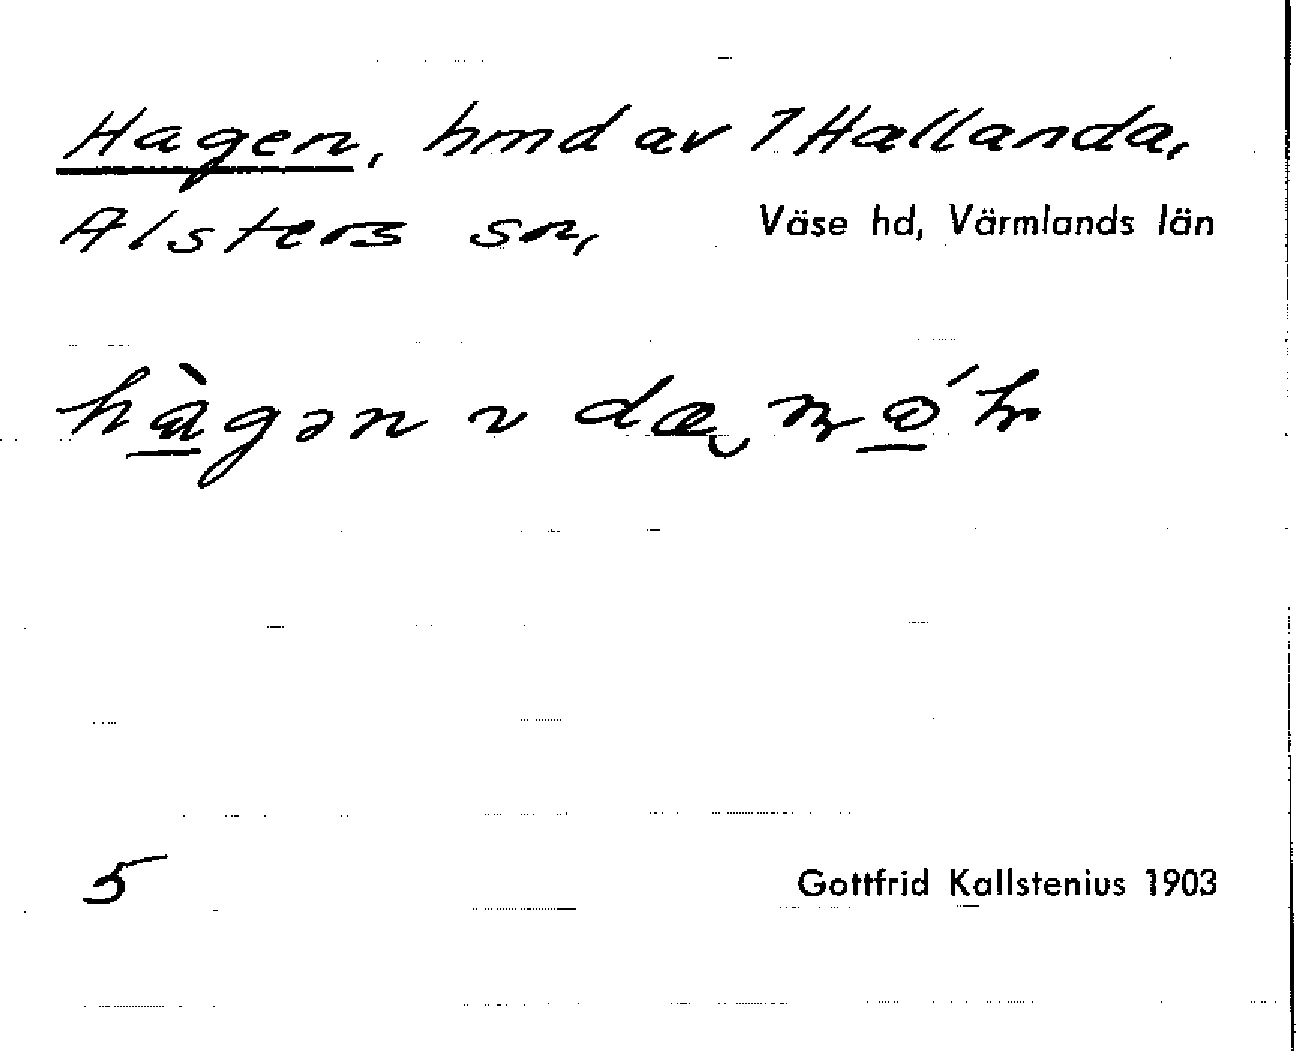 Hagen, hmd av 1 Hallanda,
Alsters sn, Väse hd, Värmlands län
hàgən
5 Gottfrid Kallstenius 1903